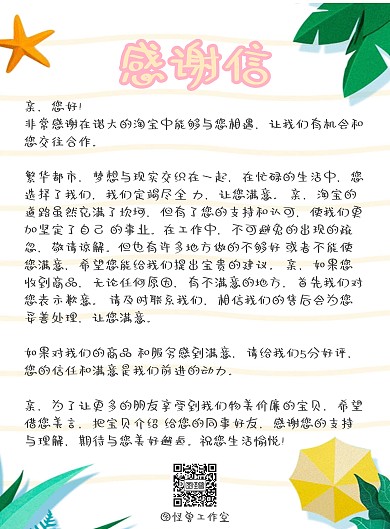 感谢信
亲，您好!
非常感谢在诺大的淘宝中能够与您相遇，让我们有机会和
您交往合作。
繁华都市，梦想与现实交织在一起，在忙碌的生活中，您
选择了我们，我们定竭尽全力，让您满意。亲，淘宝的
道路虽然充满了坎坷，但有了您的支持和认可，使我们更
加坚定了自己的事业。在工作中，不可避免的出现的疏
忽，敬请谅解。但也有许多地方做的不够好或者不能使
您满意，希望您能给我们提出宝贵的建议。亲，如果您
收到商品，无论任何原因，有不满意的地方，首先我们对
您表示歉意。请及时联系我们，相信我们的售后会为您
妥善处理，让您满意。
如果对我们的商品和服务感到满意，请给我们5分好评，
您的信任和满意是我们前进的动力。
亲，为了让更多的朋友享受到我们物美价廉的宝贝，希望
借您美言，把宝贝介绍给您的同事好友，感谢您的支持
与理解，期待与您美好邂逅。祝您生活愉悦!
图怪兽工作室